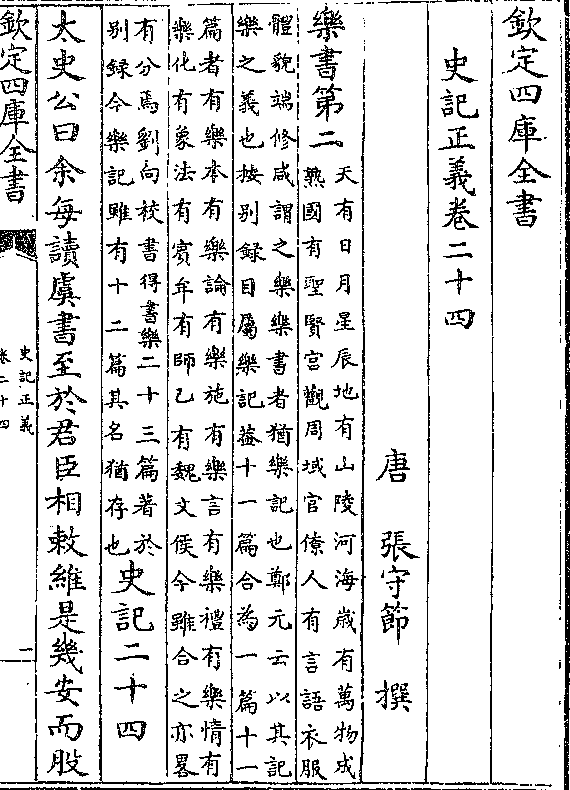 欽定四庫全書
史記正義卷二十四
唐 張守節 撰
樂書第二
天有日月星辰地有山陵河海歳有萬物成
熟國有聖賢宫觀周域官僚人有言語衣服
體貌端修咸謂之樂樂書者猶樂記也鄭元云以其記
樂之義也按别録目屬樂記葢十一篇合為一篇十一
篇者有樂本有樂論有樂施有樂言有樂禮有樂情有
樂化有象法有賓年有師乙有魏文侯今雖合之亦畧
有分焉劉向校書得書樂二十三篇著於
别録今樂記雖有十二篇其名猶存也
史記二十四
太史公曰余每讀虞書至於君臣相敕維是幾安而股
欽定四庫全書
史記正義
卷二十四
一